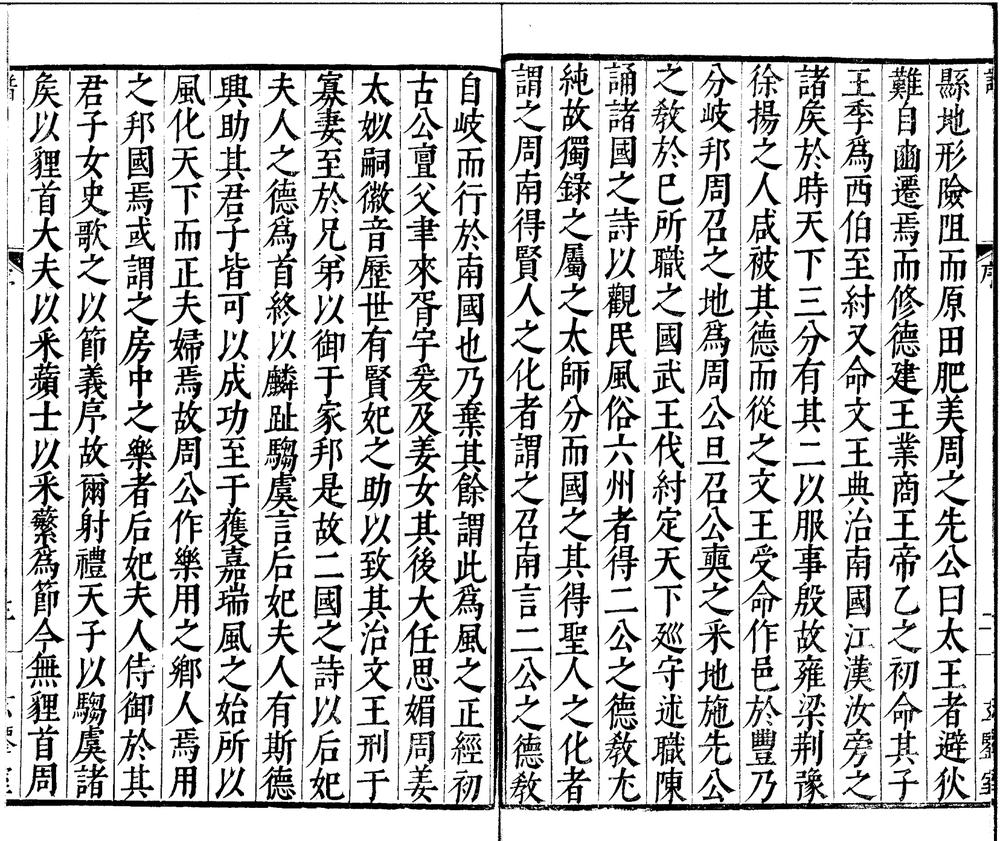 縣地形險阻而原田肥美周之先公曰太王者避狄
難自豳遷焉而修德建王業商王帝乙之初命其子
王季爲西伯至紂又命文王典治南國江漢汝旁之
諸矦於時天下三分有其二以服事殷故雍梁荆豫
徐揚之人咸被其德而從之文王受命作邑於豐乃
分岐邦周召之地爲周公旦召公奭之采地施先公
之敎於已所職之國武王伐紂定天下廵守述職陳
誦諸國之詩以觀民風俗六州者得二公之德敎尤
純故獨錄之屬之太師分而國之其得聖人之化者
謂之周南得賢人之化者謂之召南言二公之德敎
自岐而行於南國也乃棄其餘謂此爲風之正經初
古公亶父聿來胥宇爰及姜女其後大任思媚周姜
太姒嗣徽音歷世有賢妃之助以致其治文王刑于
寡妻至於兄弟以御于家邦是故二國之詩以后妃
夫人之德爲首終以麟趾騶虞言后妃夫人有斯德
興助其君子皆可以成功至于獲嘉瑞風之始所以
風化天下而正夫婦焉故周公作樂用之鄉人焉用
之邦國焉或謂之房中之樂者后妃夫人侍御於其
君子女史歌之以節義序故爾射禮天子以騶虞諸
矦以貍首大夫以采蘋士以采蘩爲節今無貍首周